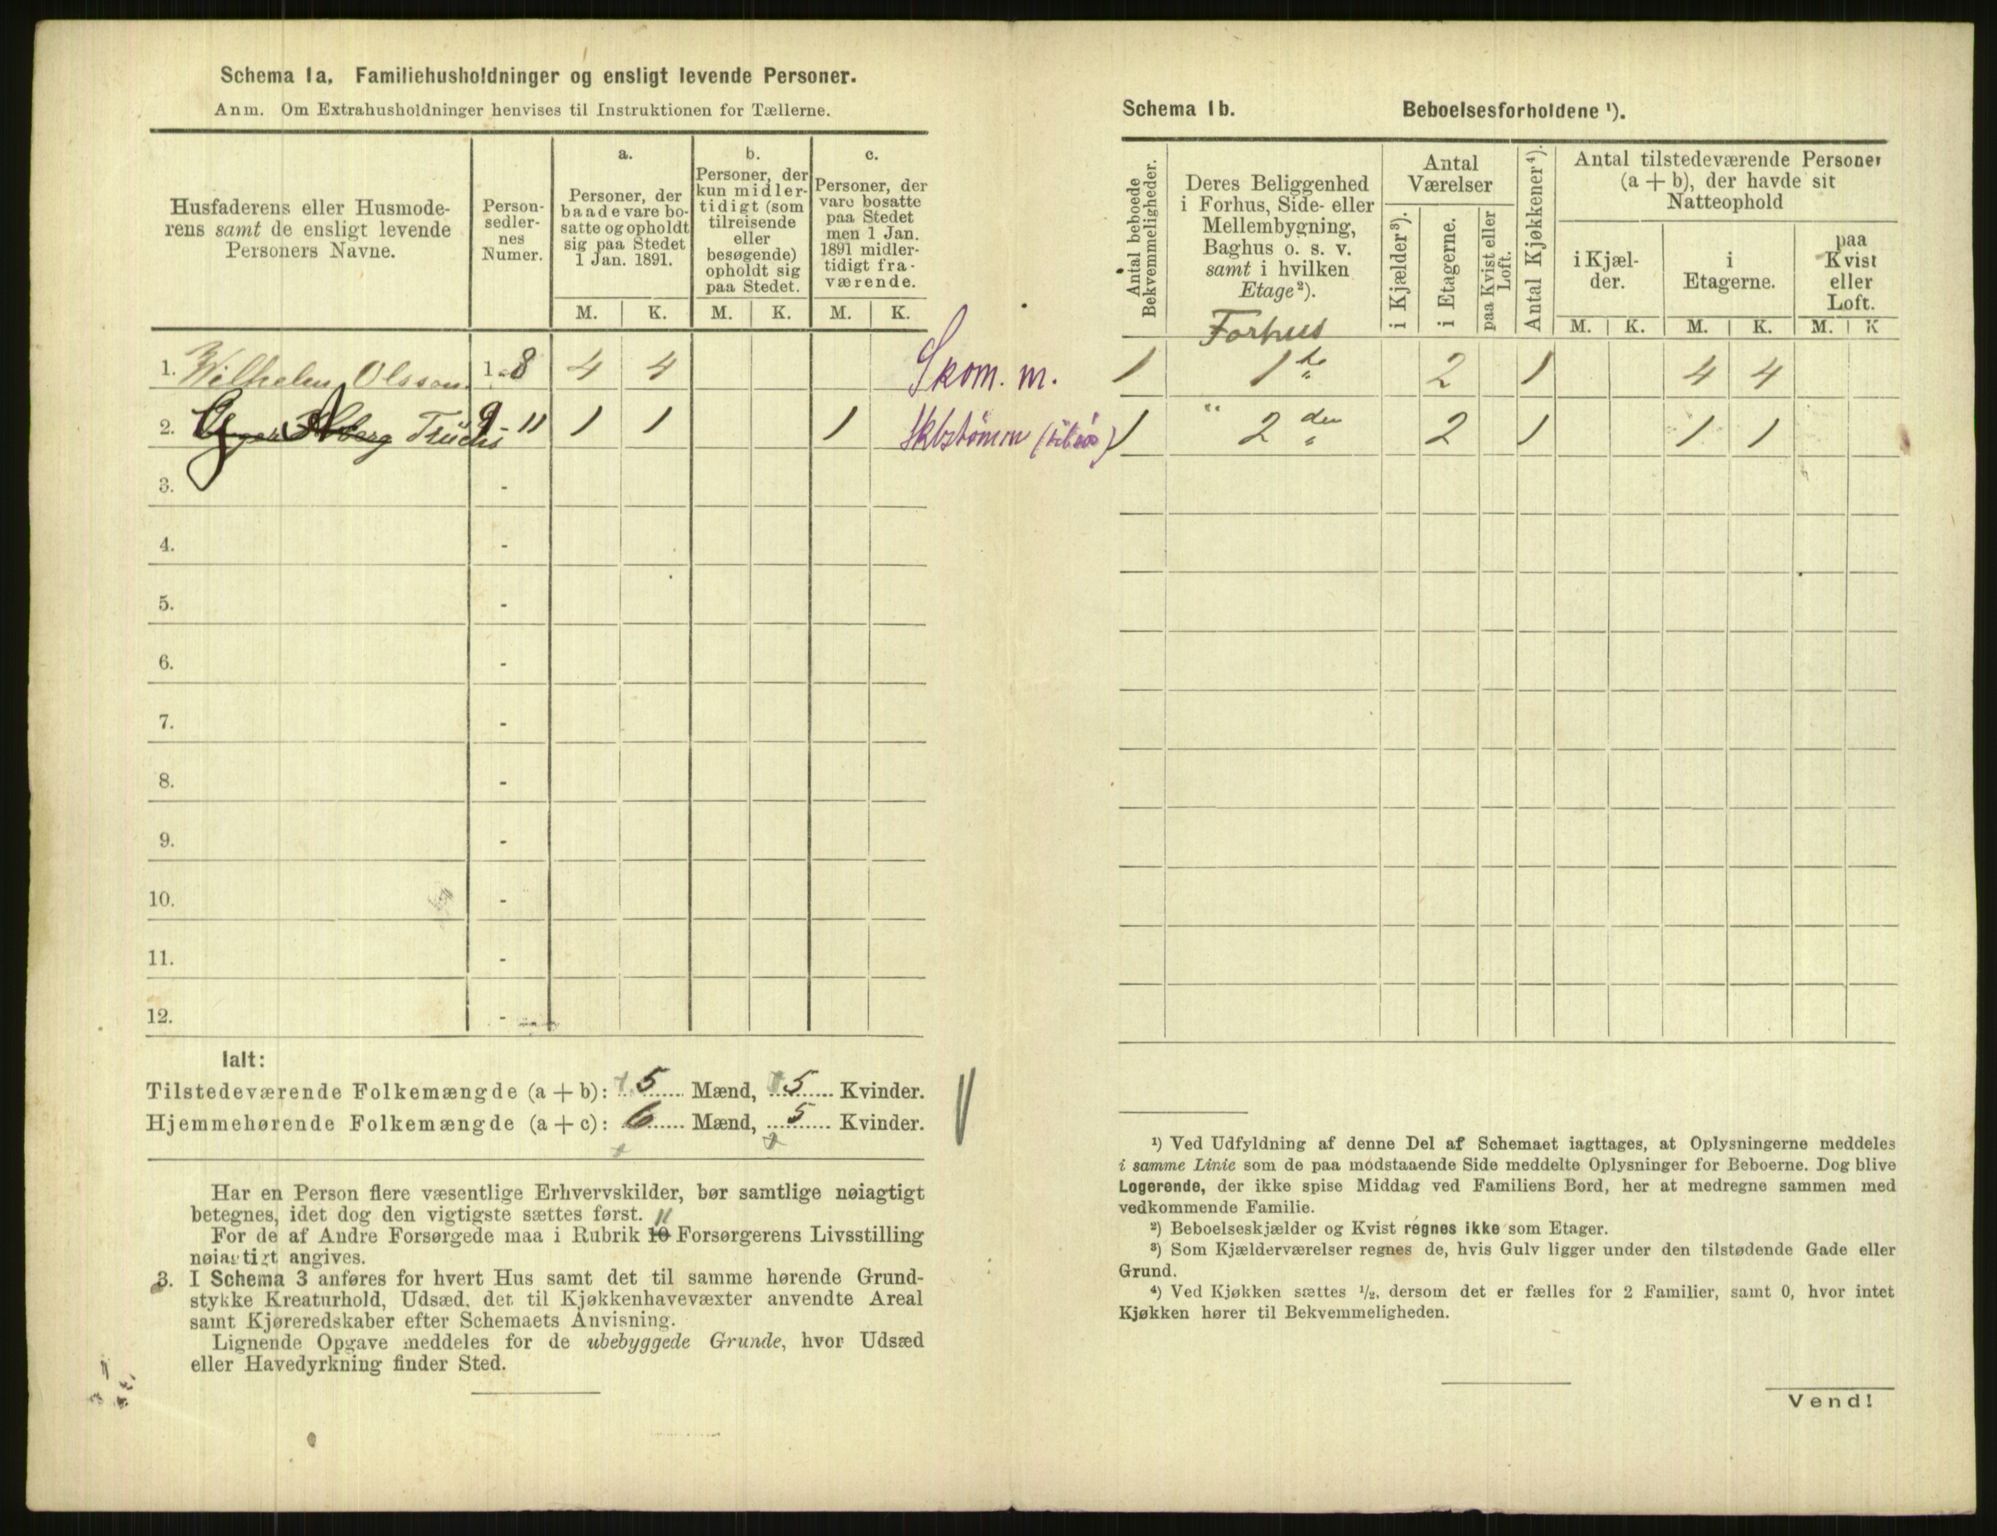 Schema 1a. Familiehusholdninger og ensligt levende Personer.
Anm. Om Extrahusholdninger henvises til Instruktionen for Tællerne.
Husfaderens eller Husmode-
rens samt de ensligt levende
Personers Navne.
Person-
sedler-
nes
Numer.
a.
Personer, der
baade vare bo-
satte og opholdt
sig paa Stedet
1 Jan. 1891.
b.
Personer, der
kun midler-
tidigt (som
tilreisende
eller
besøgende)
opholdt sig
paa Stedet.
c.
Personer, der
vare bosatte
paa Stedet
men 1 Jan.
1891 midler-
tidigt fra-
værende.
M. K. M. K. M. K.
1. Wilhelm Olsson 1-8 4 4 Skom. m.
2. 9-11 1 1 1
3. -
4. -
5. -
6. -
7. -
8. -
9. -
10. -
11. -
12. -
Ialt:
Tilstedeværende Folkemængde (a + b): 5 Mænd, 5 Kvinder.
Hjemmehørende Folkemængde (a + c): 6 Mænd, 5 Kvinder.
Har en Person flere væsentlige Erhvervskilder, bør samtlige nøiagtigt
betegnes, idet dog den vigtigste sættes først.
11
For de af Andre Forsørgede maa i Rubrik 10 Forsørgerens Livsstilling
nøiagtigt angives.
3. I Schema 3 anføres for hvert Hus samt det til samme hørende Grund-
stykke Kreaturhold, Udsæd, det til Kjøkkenhavevæxter anvendte Areal
samt Kjøreredskaber efter Schemaets Anvisning.
Lignende Opgave meddeles for de ubebyggede Grunde, hvor Udsæd
eller Havedyrkning finder Sted.
Schema 1b. Beboelsesforholdene ¹).
Antal beboede
Bekvemmeligheder.
Deres Beliggenhed
i Forhus, Side- eller
Mellembygning,
Baghus o. s. v.
samt i hvilken
Etage²).
Antal
Værelser
i Kjælder³).
i Etagerne.
paa Kvist eller
Loft.
Antal Kjøkkener⁴).
Antal tilstedeværende Personer
(a + b), der havde sit
Natteophold
i Kjæl-
der.
i
Etagerne.
paa
Kvist
eller
Loft.
M. K. M. K. M. K
Forhus
1 1ste 2 1 4 4
1 " 2 den 2 1 1 1
¹) Ved Udfyldning af denne Del af Schemaet iagttages, at Oplysningerne meddeles
i samme Linie som de paa modstaaende Side meddelte Oplysninger for Beboerne. Dog blive
Logerende, der ikke spise Middag ved Familiens Bord, her at medregne sammen med
vedkommende Familie.
²) Beboelseskjælder og Kvist regnes ikke som Etager.
³) Som Kjælderværelser regnes de, hvis Gulv ligger under den tilstødende Gade eller
Grund.
⁴) Ved Kjøkken sættes ½, dersom det er fælles for 2 Familier, samt 0, hvor intet
Kjøkken hører til Bekvemmeligheden.
Vend!